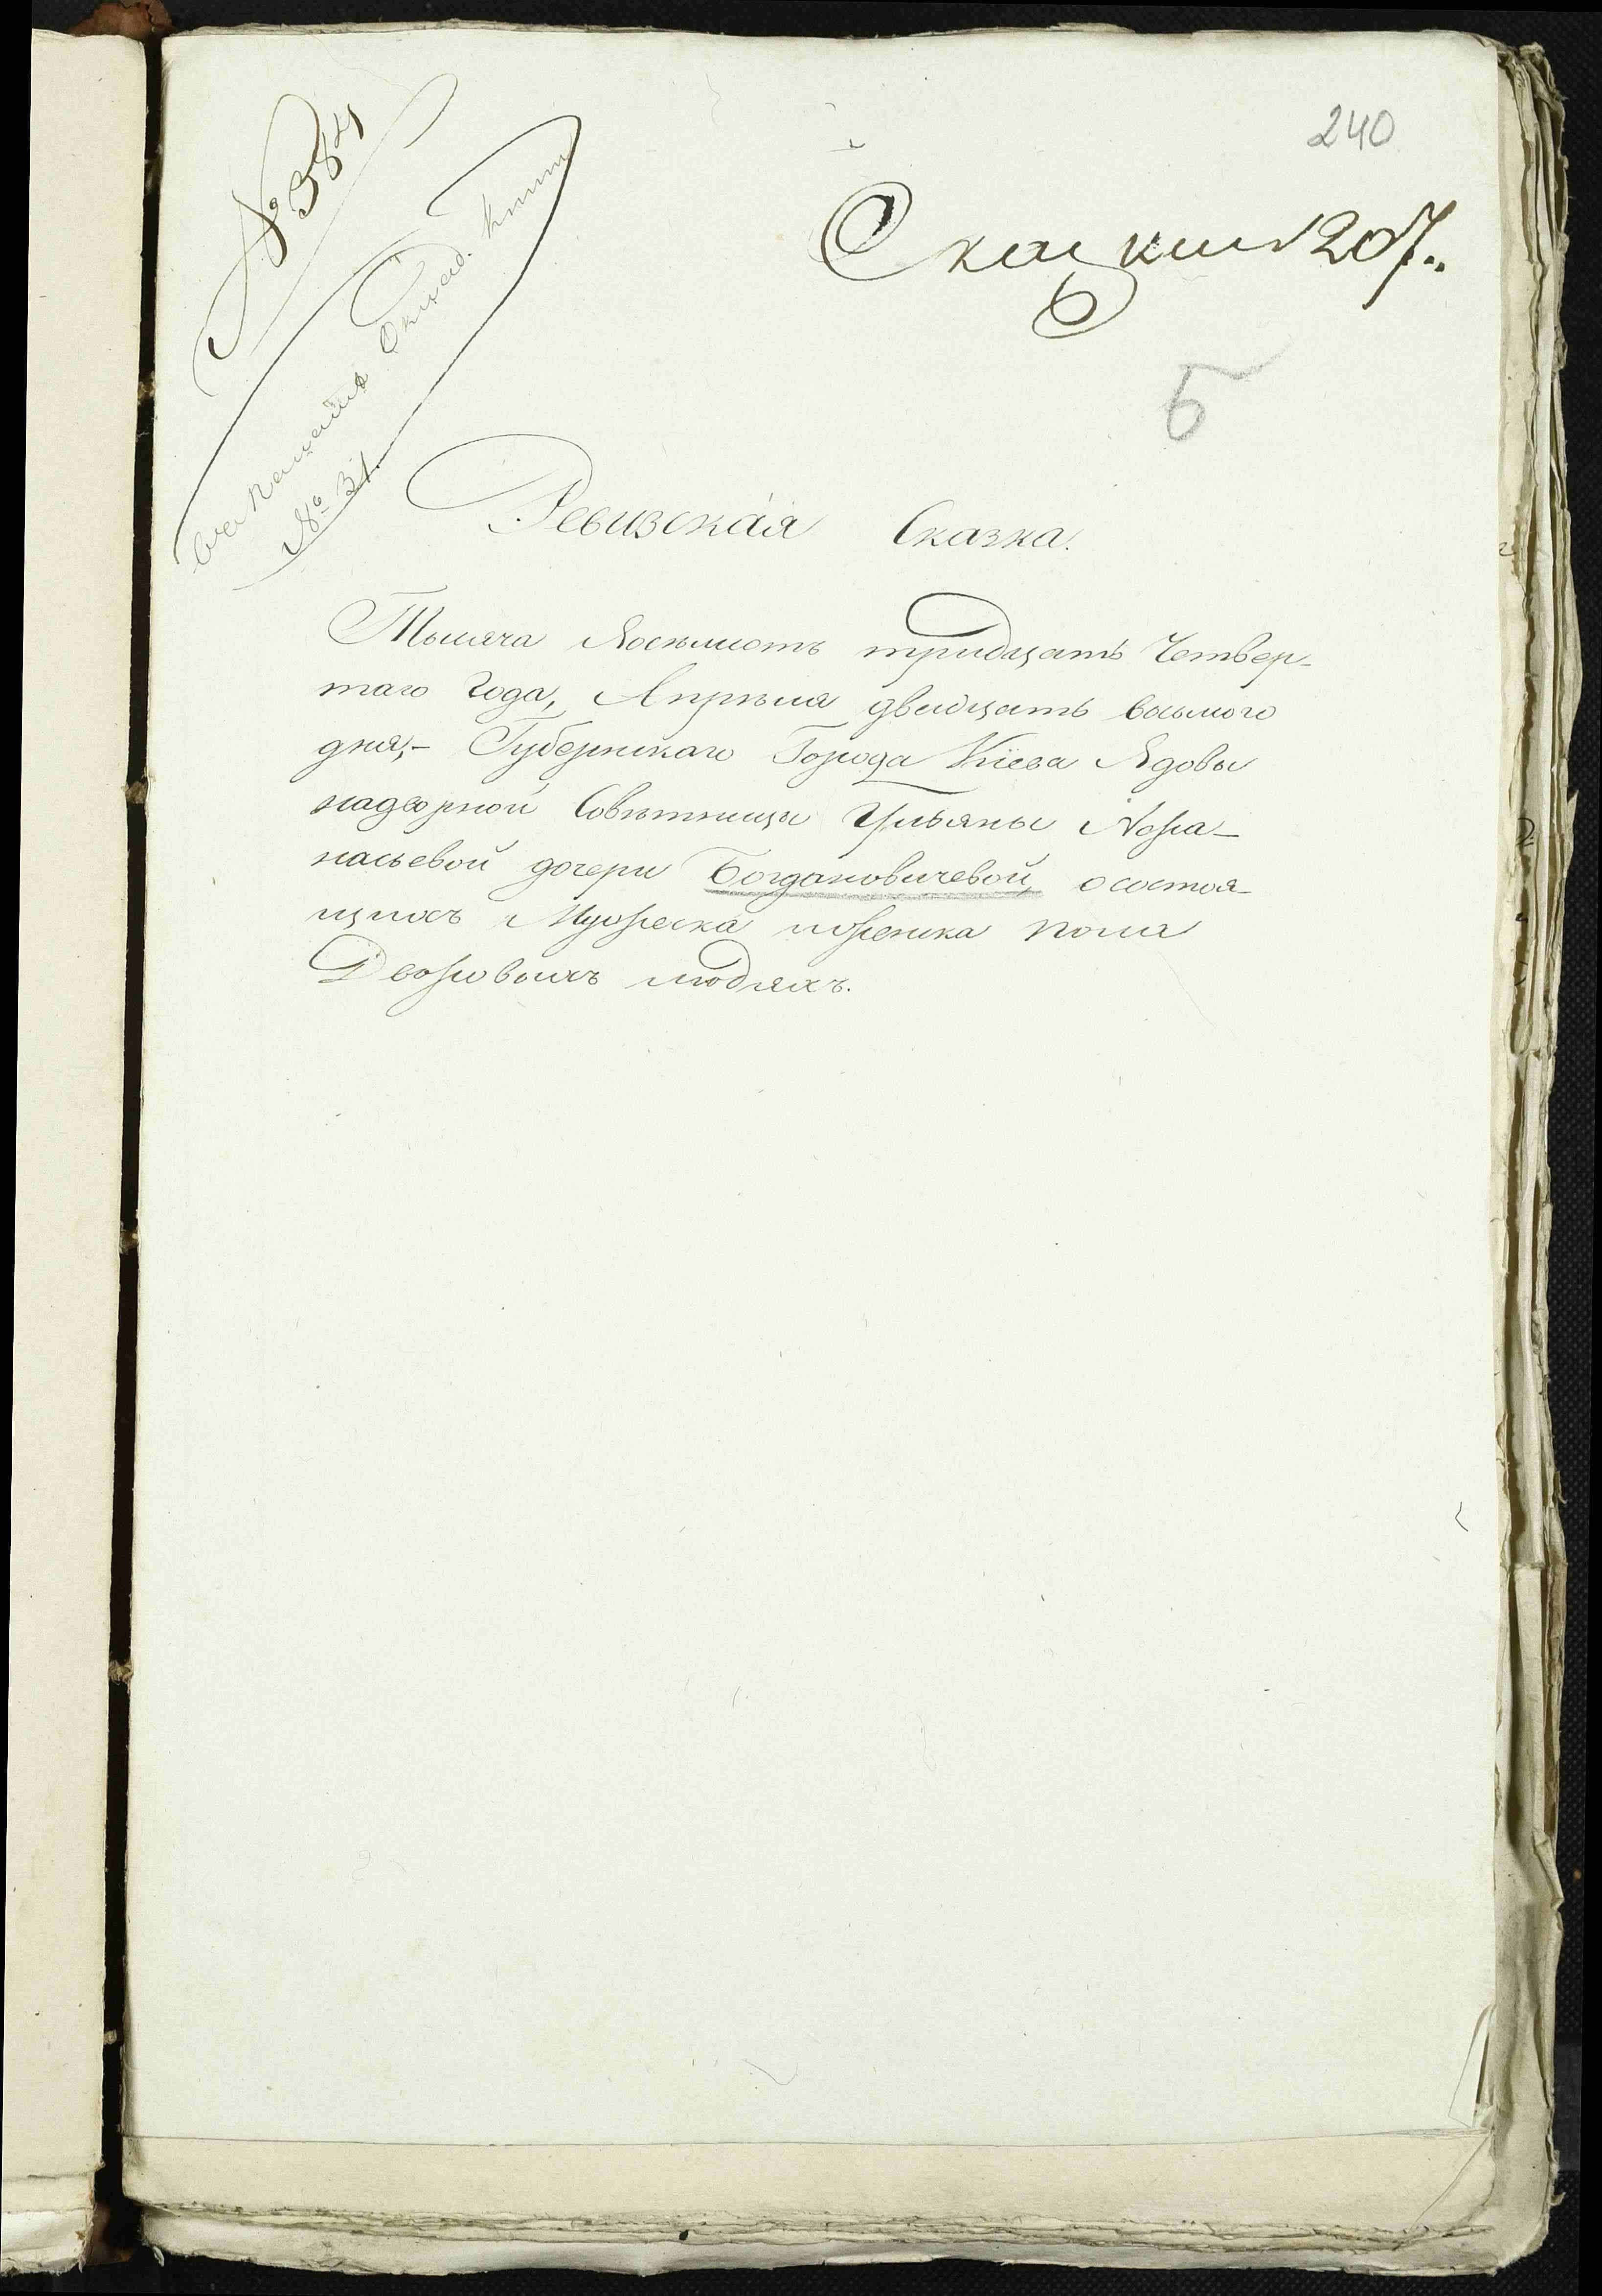 240
№ 384
Сказки 207.
№ 31.
Б
Ревизская Сказка.
Тысяча Восемьсотъ тридцать Четвер-
таго Года, Апрѣля двадцать восьмого
дня,- Губернскаго Города Кіева Вдовы
надворной Совѣтницы Ульяны Афа-
насьевой дочери Богдановичевой, о состоя-
щихъ Мужеска и женска пола
Дворовыхъ людяхъ.